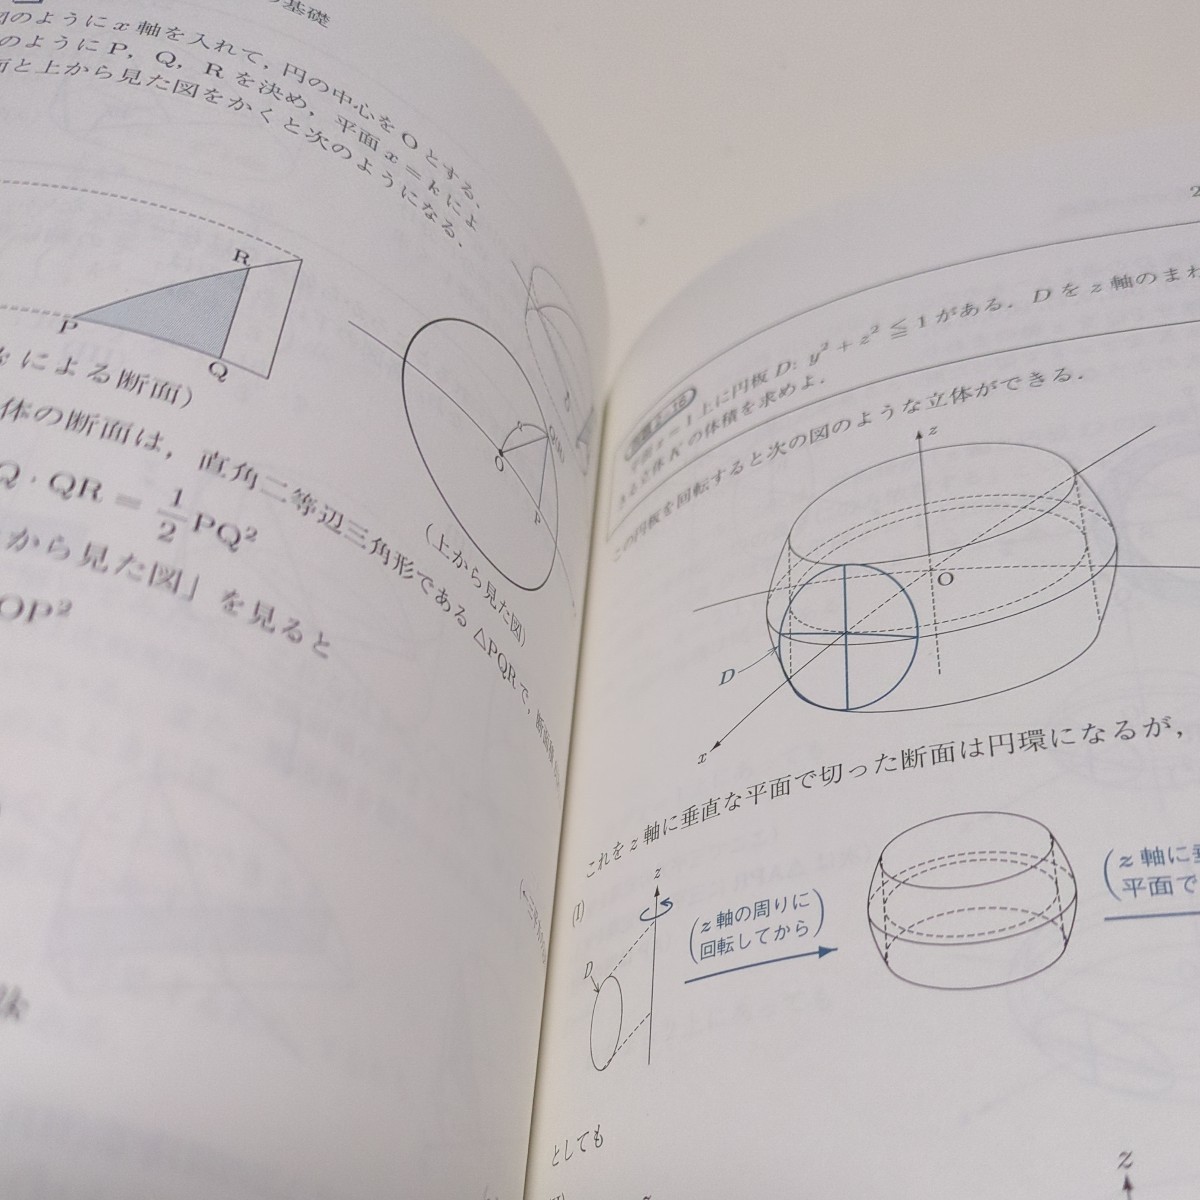 の基礎
のように x 軸を入れて，円の中心を O とする．
のように P，Q，R を決め，平面 x = k によ
面と上から見た図をかくと次のようになる．
R
P
Q
による断面）
O
P
(上から見た図)
体の断面は，直角二等辺三角形である △PQR で，断面積
Q・QR = 1/2 PQ²
から見た図」を見ると
OP²
2
平面 x = 1 上に円板 D: y² + z² ≦ 1 がある．D を z 軸のまわ
きる立体 K の体積を求めよ．
この円板を回転すると次の図のような立体ができる．
z
O
D
x
これを z 軸に垂直な平面で切った断面は円環になるが，
(I)
z
D
(z 軸の周りに
回転してから)
(z 軸に垂
平面で
としても
z